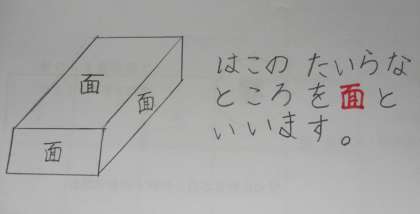 面
面
面
はこの たいらな
ところを面と
いいます。